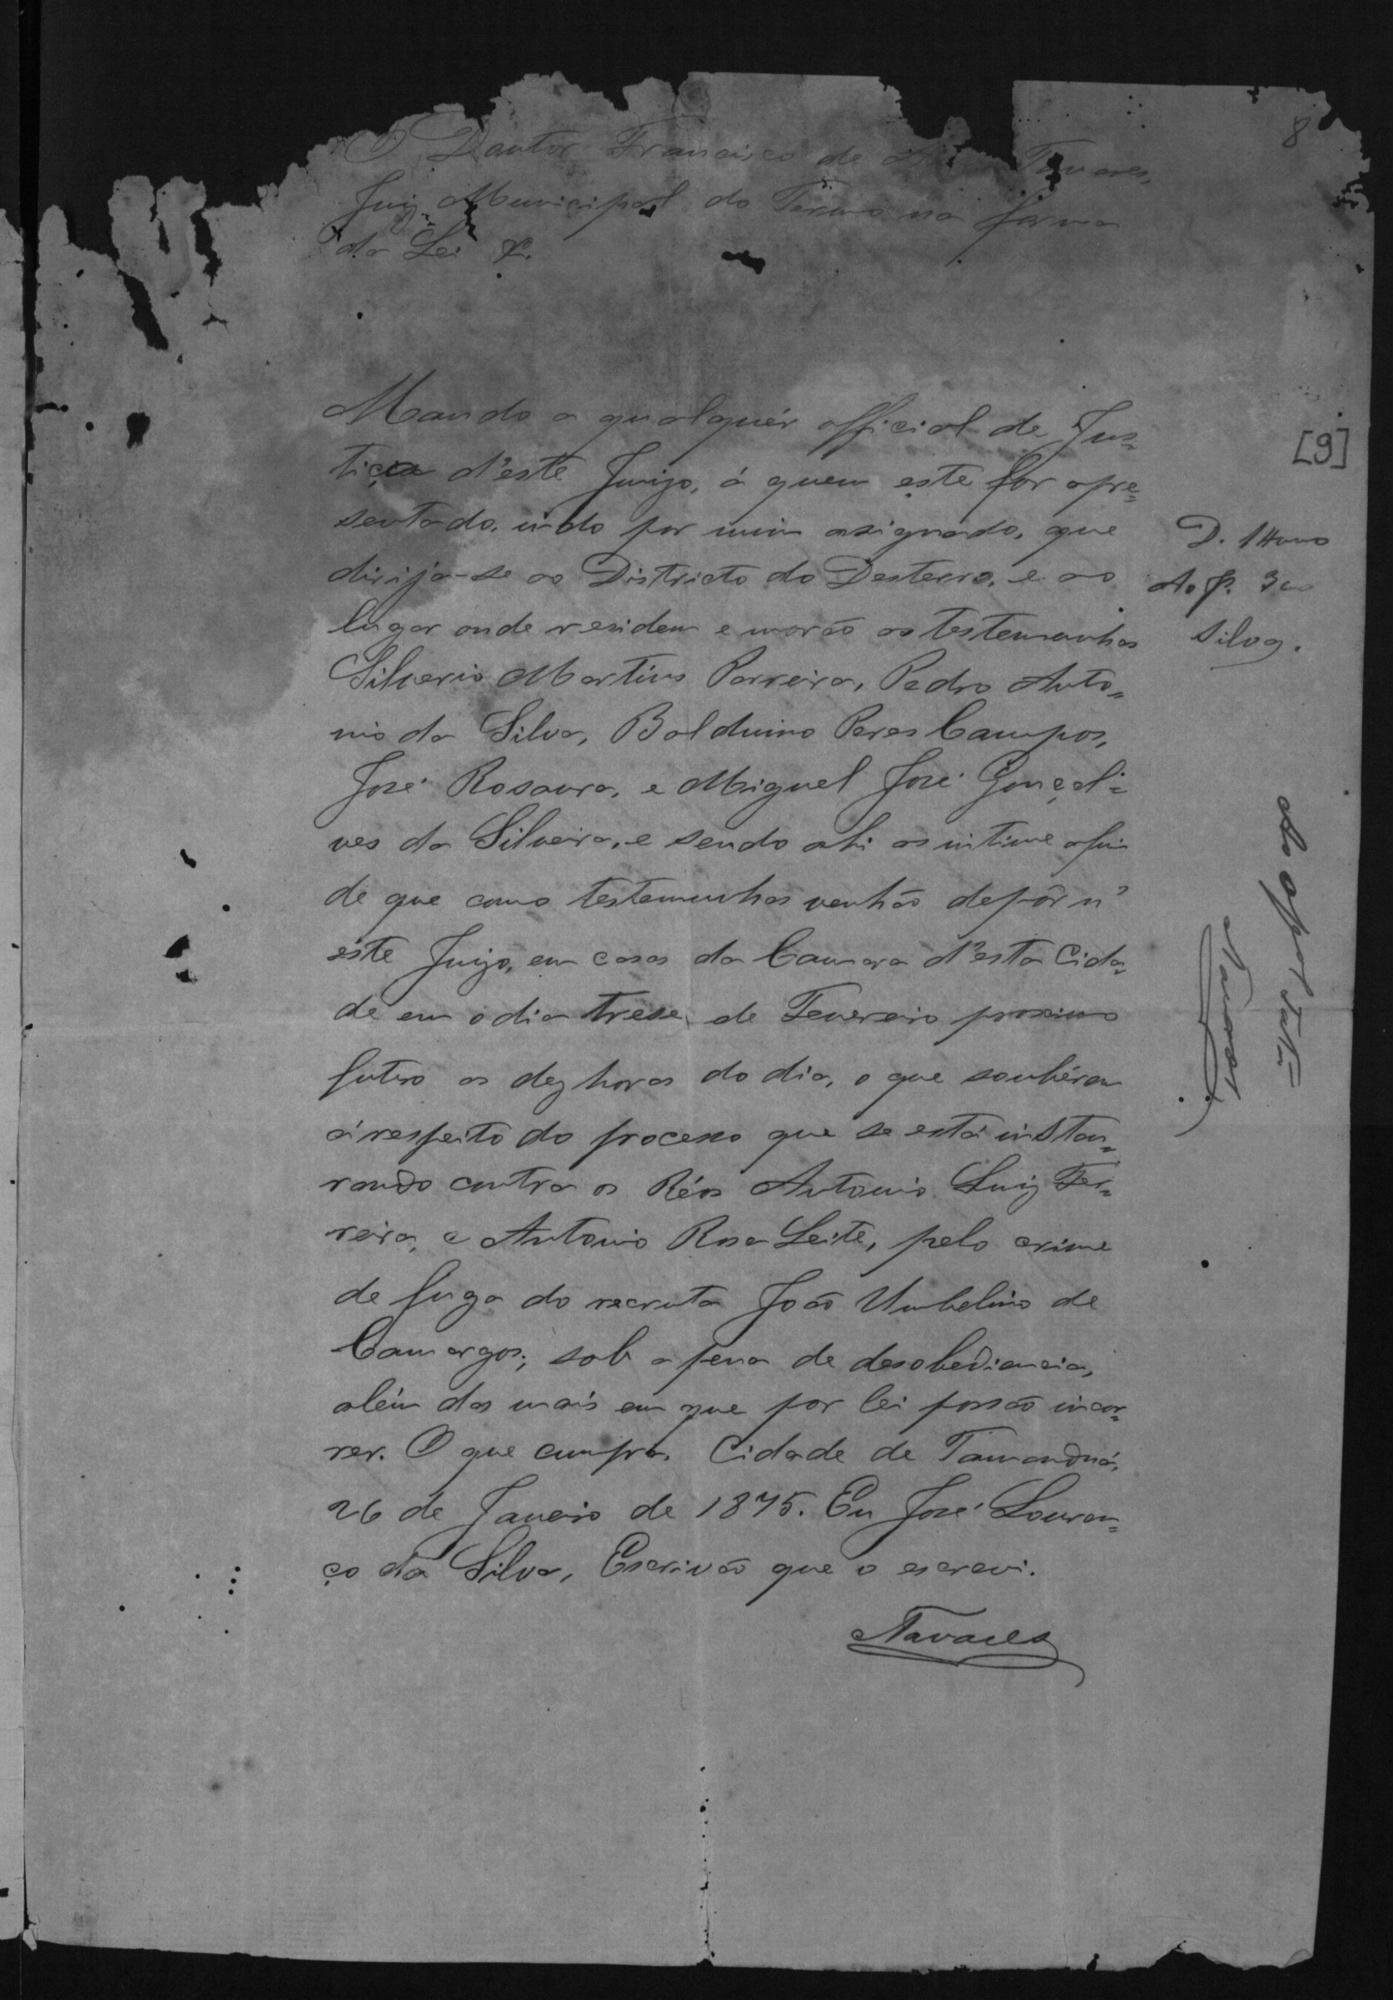 8
O Doutor Francisco de Tavares,
Juiz Municipal do Termo na forma
da Lei &.
Mando a qualquér official de Jus-
tiça d'este Juizo, á quem este for apre-
sentado, indo por mim asignado, que
dirija-se ao Districto do Desterro, e ao
lugar onde residem e morão as testemunhas
Silverio Martins Parreira, Pedro Anto-
nio da Silva, Balduino Peres Campos,
José Rosaura, e Miguel José Gonçal-
ves da Silveira, e sendo ahi os intime afim
de que como testemunhas venhão depôr n'
este Juizo, em casas da Camara d'esta Cida-
de em o dia trese de Fevereiro proximo
futuro as dez horas do dia, o que soubérem
á respeito do processo que se está instau-
rando contra os Réos Antonio Luiz Fer-
reira, e Antonio Rosa Leite, pelo crime
de fuga do recruta João Umbelino de
Camargos; sob a pena de desobediencia,
além das mais em que por lei possão incor-
rer. O que cumpra. Cidade de Tamanduá,
26 de Janeiro de 1875. Eu José Louren-
ço da Silva, Escrivão que o escrevi.
Tavares
[9]
Silva.
Tavares